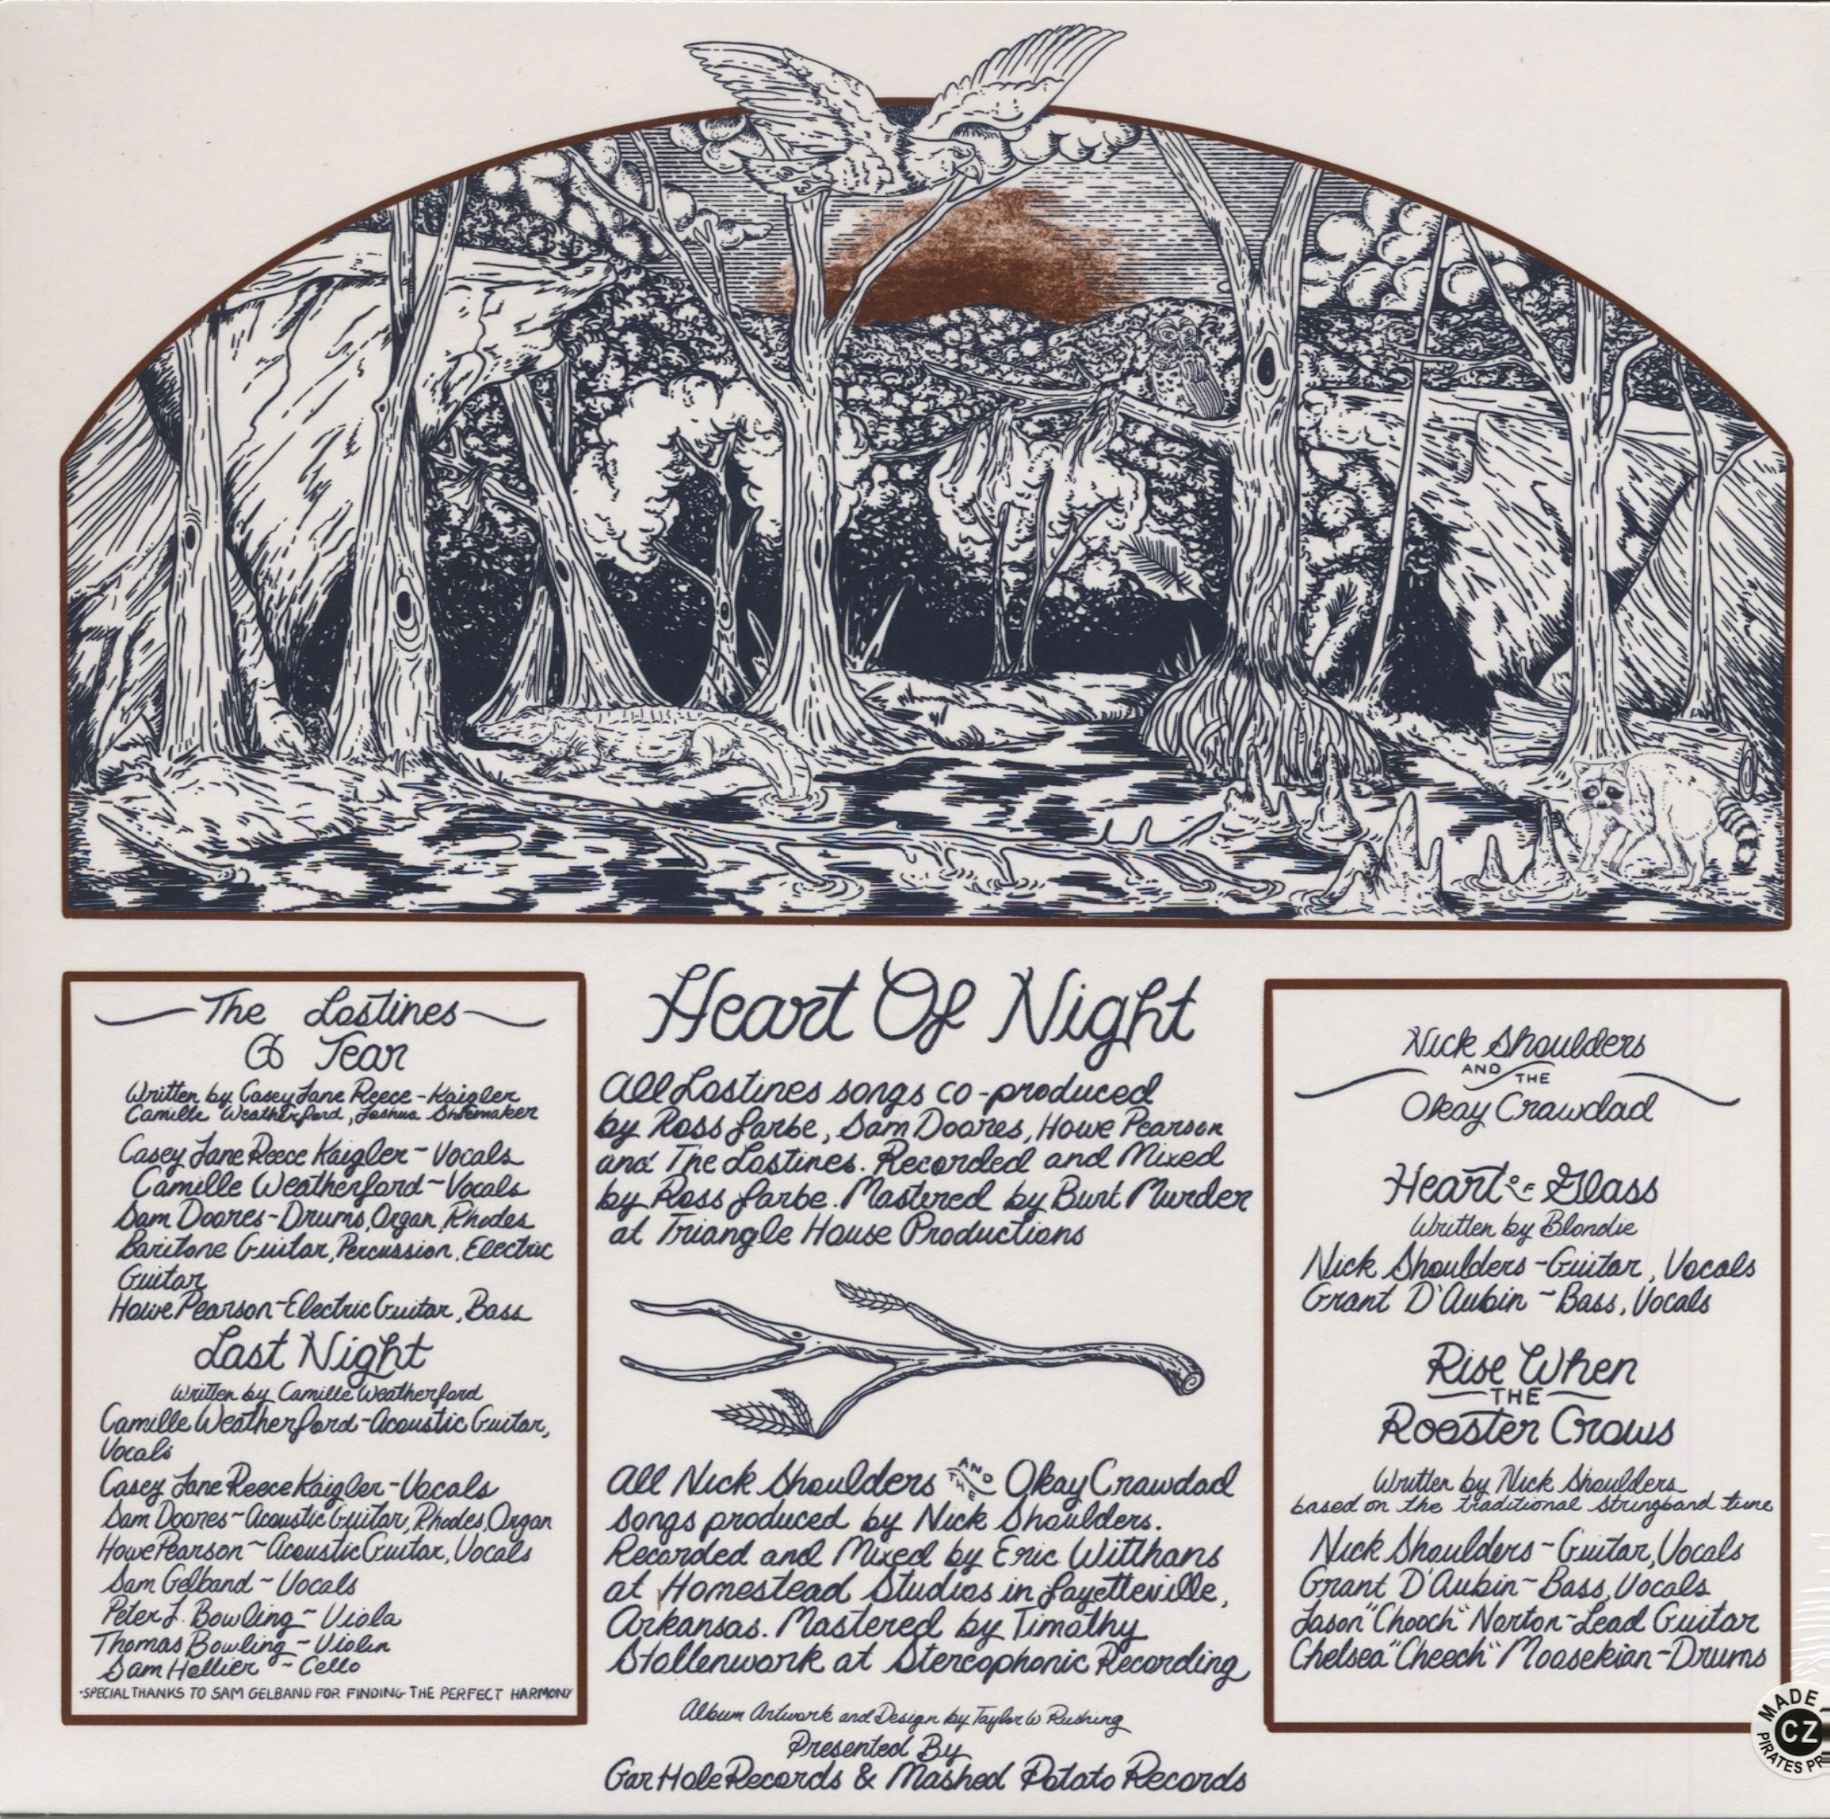 The Lostines
A Tear
Written by Casey Jane Reece-Kaigler
Camille Weatherford, Joshua Shoemaker
Casey Jane Reece Kaigler - Vocals
Camille Weatherford - Vocals
Sam Doores - Drums, Organ, Rhodes
Baritone Guitar, Percussion, Electric
Guitar
Howe Pearson - Electric Guitar, Bass
Last Night
Written by Camille Weatherford
Camille Weatherford - Acoustic Guitar,
Vocals
Casey Jane Reece Kaigler - Vocals
Sam Doores - Acoustic Guitar, Rhodes, Organ
Howe Pearson - Acoustic Guitar, Vocals
Sam Gelband - Vocals
Peter J. Bowling - Viola
Thomas Bowling - Violin
Sam Hollier - Cello
-SPECIAL THANKS TO SAM GELBAND FOR FINDING THE PERFECT HARMONY
Heart Of Night
All Lostines songs co-produced
by Ross Farbe, Sam Doores, Howe Pearson
and The Lostines. Recorded and Mixed
by Ross Farbe. Mastered by Burt Murder
at Triangle House Productions
All Nick Shoulders AND THE Okay Crawdad
songs produced by Nick Shoulders.
Recorded and Mixed by Eric Witthans
at Homestead Studios in Fayetteville,
Arkansas. Mastered by Timothy
Stollenwork at Stereophonic Recording
Album Artwork and Design by Taylor W Rushing
Presented By
Gar Hole Records & Mashed Potato Records
Nick Shoulders
AND THE
Okay Crawdad
Heart OF Glass
Written by Blondie
Nick Shoulders - Guitar, Vocals
Grant D'Aubin - Bass, Vocals
Rise When
THE
Rooster Crows
Written by Nick Shoulders
based on the traditional Stringband tune
Nick Shoulders - Guitar, Vocals
Grant D'Aubin - Bass, Vocals
Jason "Chooch" Norton - Lead Guitar
Chelsea "Cheech" Moosekian - Drums
MADE
CZ
PIRATES PR